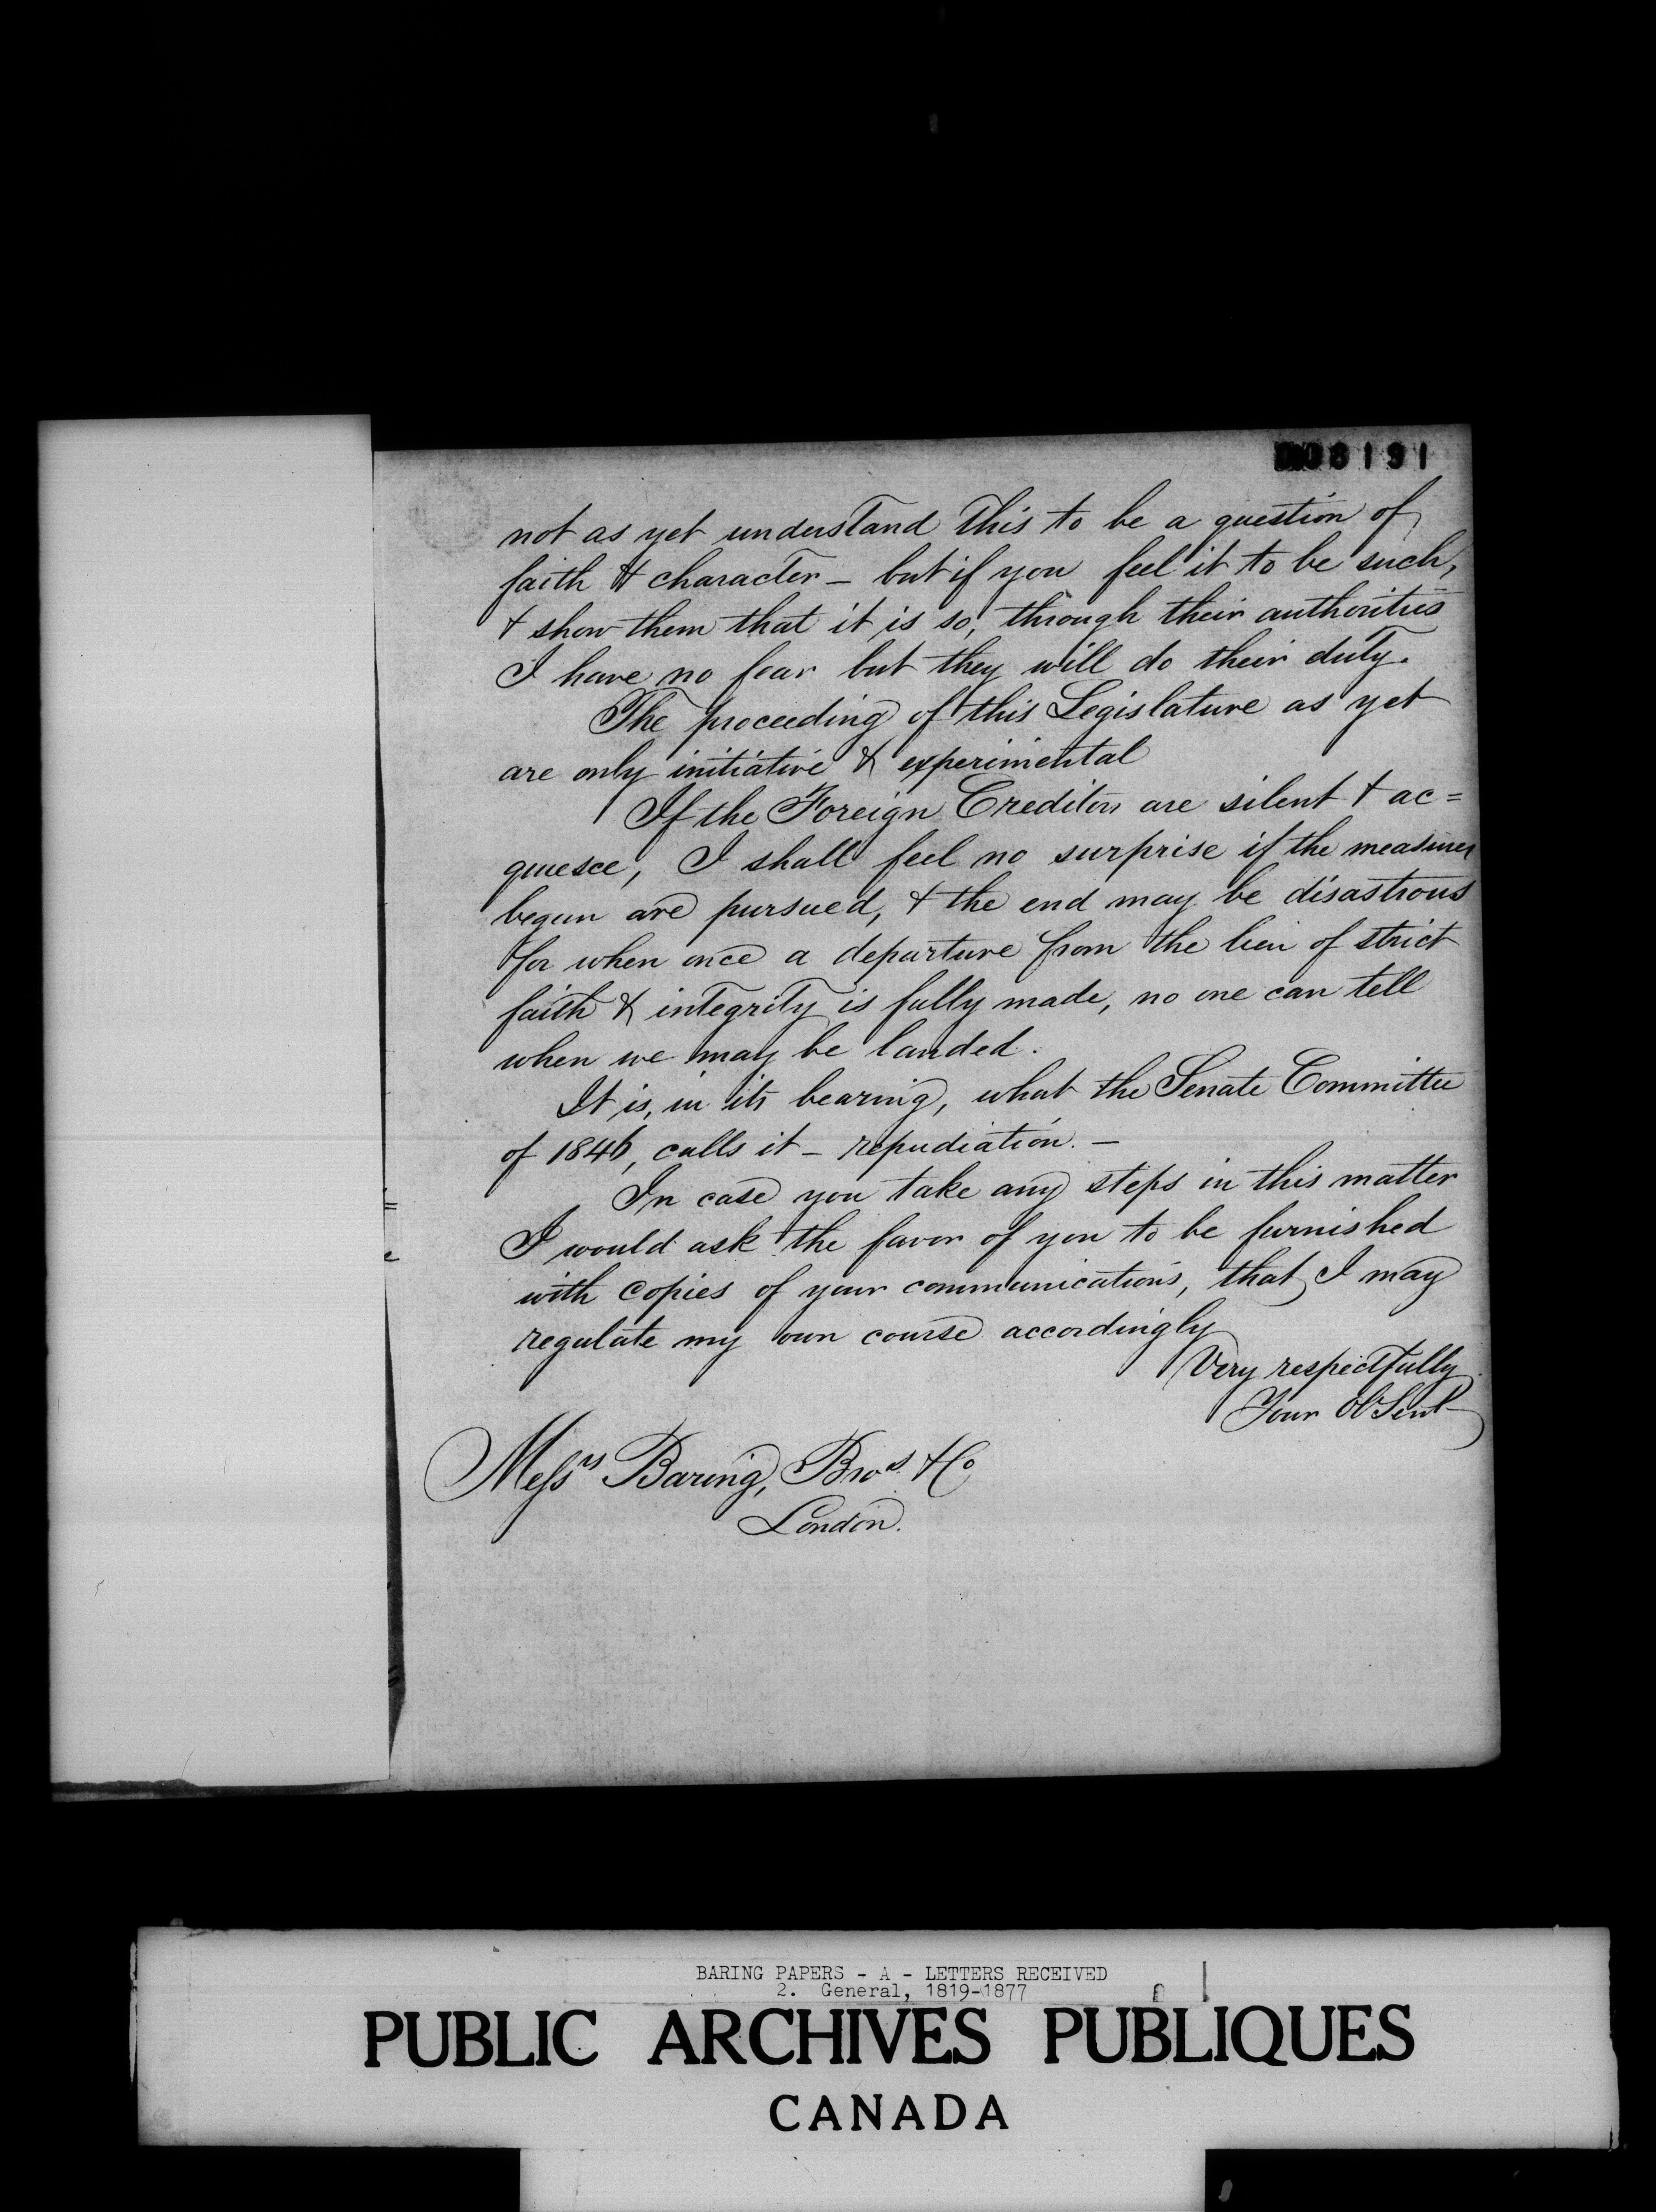 008191
not as yet understand this to be a question of
faith & character – but if you feel it to be such,
& show them that it is so, through their authorities
I have no fear but they will do their duty.
The proceeding of this Legislature as yet
are only initiative & experimental
If the Foreign Creditors are silent & ac=
quiesce, I shall feel no surprise if the measures
begun are pursued, & the end may be disastrous
for when once a departure from the lien of strict
faith & integrity is fully made, no one can tell
when we may be landed.
It is, in its bearing, what the Senate Committee
of 1846, calls it – repudiation. –
In case you take any steps in this matter
I would ask the favor of you to be furnished
with copies of your communications, that I may
regulate my own course accordingly
Very respectfully
Your Ob Sevt
Messrs Baring, Bros & Co
London.
BARING PAPERS - A - LETTERS RECEIVED
2. General, 1819-1877
PUBLIC ARCHIVES PUBLIQUES
CANADA